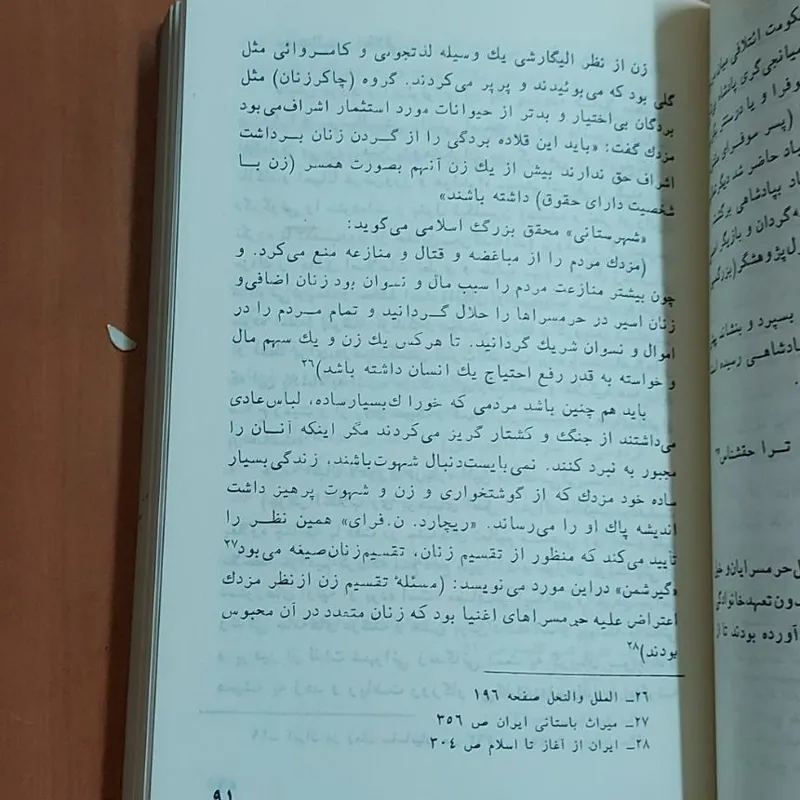 زن از نظر الیگارشی یك وسیله لذتجوئی و کامروائی مثل
گلی بود که می‌بوئیدند و پرپر می‌کردند. گروه (چاکرزنان) مثل
بردگان بی‌اختیار و بدتر از حیوانات مورد استثمار اشراف‌می‌بود
مزدك گفت: «باید این قلاده بردگی را از گردن زنان برداشت
اشراف حق ندارند بیش از یك زن آنهم بصورت همسر (زن با
شخصیت دارای حقوق) داشته باشند»
«شهرستانی» محقق بزرگ اسلامی می‌گوید:
(مزدك مردم را از مباغضه و قتال و منازعه منع می‌کرد. و
چون بیشتر منازعت مردم را سبب مال و نسوان بود زنان اضافی‌و
زنان اسیر در حرمسراها را حلال گردانید و تمام مردم را در
اموال و نسوان شریك گردانید. تا هرکس یك زن و یك سهم مال
و خواسته به قدر رفع احتیاج یك انسان داشته باشد)۲۶
باید هم چنین باشد مردمی که خوراك‌بسیارساده، لباس‌عادی
می‌داشتند از جنگ و کشتار گریز می‌کردند مگر اینکه آنان را
مجبور به نبرد کنند. نمی‌بایست‌دنبال شهوت‌باشند، زندگی‌بسیار
ساده خود مزدك که از گوشتخواری و زن و شهوت پرهیز داشت
اندیشه پاك او را می‌رساند. «ریچارد. ن.فرای» همین نظر را
تأیید می‌کند که منظور از تقسیم زنان، تقسیم‌زنان‌صیغه می‌بود۲۷
«گیرشمن» دراین مورد می‌نویسد: (مسئلهٔ تقسیم زن ازنظر مزدك
اعتراض علیه حرمسراهای اغنیا بود که زنان متعدد در آن محبوس
بودند)۲۸
۲۶ـ الملل والنحل صفحه ۱۹۶
۲۷ـ میراث باستانی ایران ص ۳۵۶
۲۸ـ ایران از آغاز تا اسلام ص ۳۰۴
۹۱
حکومت ائتلافی
(پسر سوفرای
باد حاضر شد
اد بپادشاهی برگشت
گردان و بازیگر
بسپرد و بنشاند
ادشاهی رسیده
ترا حقشناس
آورده بودند تا از